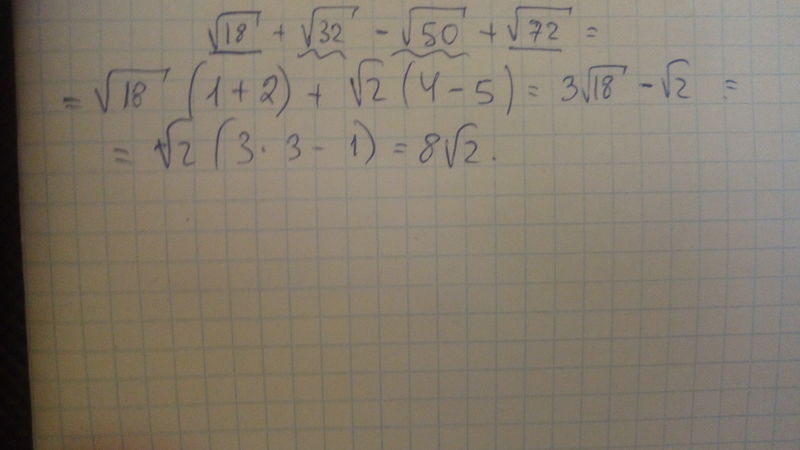 √18 + √32 - √50 + √72 =
= √18 (1+2) + √2 (4-5) = 3√18 - √2 =
= √2 (3·3-1) = 8√2.